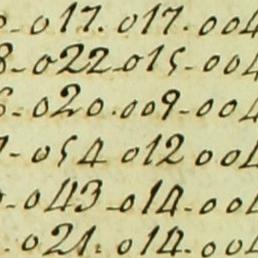 -017.017.004
8-022-015-004
6-020.009-004
-054 012 004
-043-014-004
.021.014-004